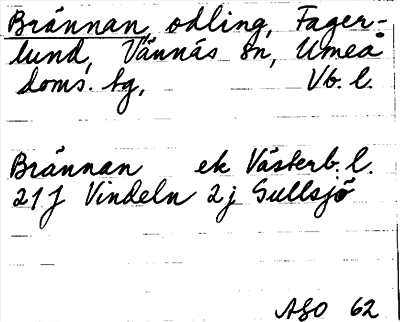 Brännan, odling, Fager-
lund, Vännäs sn, Umeå
doms. bg, Vb. l.
Brännan ek Västerb. l.
21 J Vindeln 2 j Gullsjö
ASO 62